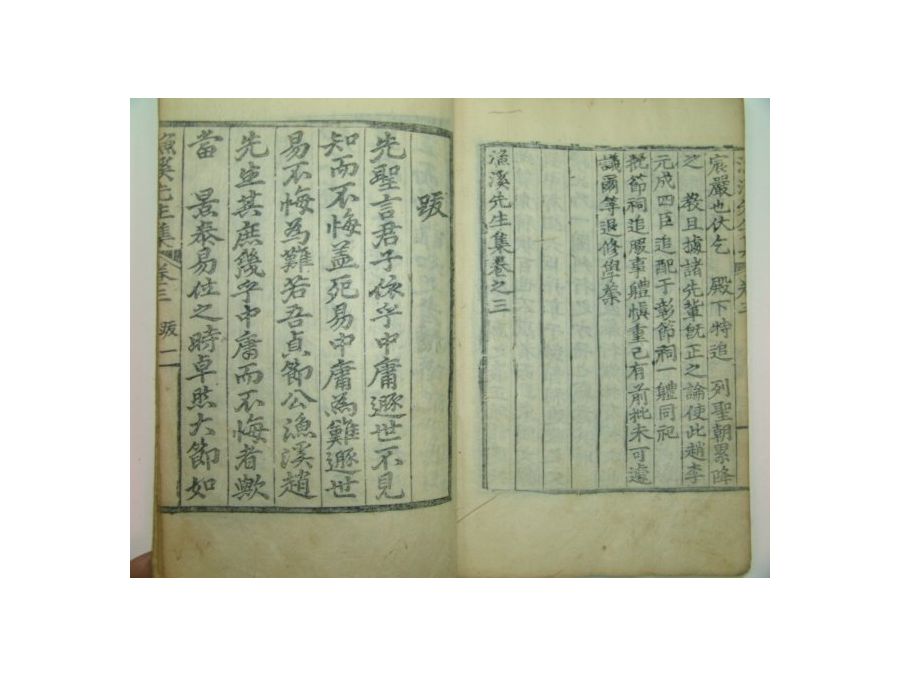 宸嚴也伏乞　殿下特追　列聖朝累降
之　教且據諸先輩旣正之論使此趙李
元成四臣追配于彰節祠一軆同祀
批節祠追腏事軆愼重已有前批未可遽
議爾等退修學業
漁溪先生集卷之三
跋
先聖言君子依乎中庸遯世不見
知而不悔蓋死易中庸爲難遯世
易不悔爲難若吾貞節公漁溪趙
先生其庶幾乎中庸而不悔者歟
當　景泰易仕之時卓然大節如
漁溪先生集　卷三　跋　一